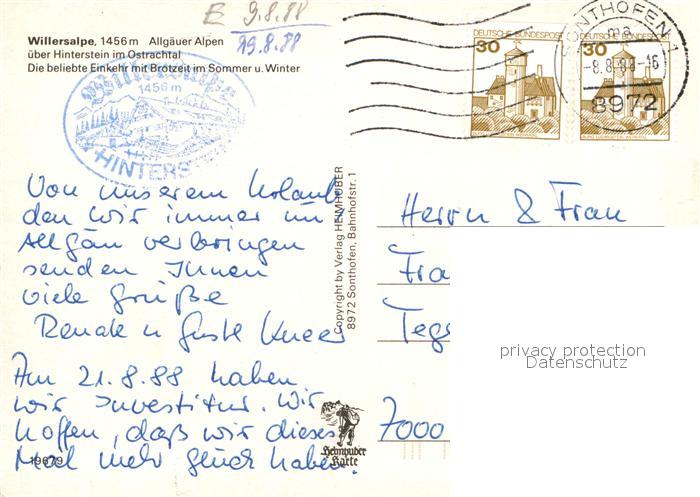 E 9.8.88
19.8.88
Willersalpe, 1456 m Allgäuer Alpen
über Hinterstein im Ostrachtal
Die beliebte Einkehr mit Brotzeit im Sommer u. Winter
Willersalpe
1456 m
HINTERS
DEUTSCHE BUNDESPOST
30
DEUTSCHE BUNDESPOST
30
SONTHOFEN 1
ma
-8.8.88-16
8972
Von unserem Urlaub
den wir immer im
Allgäu verbringen
senden Ihnen
viele Grüße
Renate u Guste
Am 21.8.88 haben
wir Investitur. Wir
hoffen, daß wir dieses
Mal mehr Glück haben.
19679
Copyright by Verlag HEIMHUBER
8972 Sonthofen, Bahnhofstr. 1
Heimhuber
Karte
Herrn & Frau
Fra
Tegs
7000
privacy protection
Datenschutz